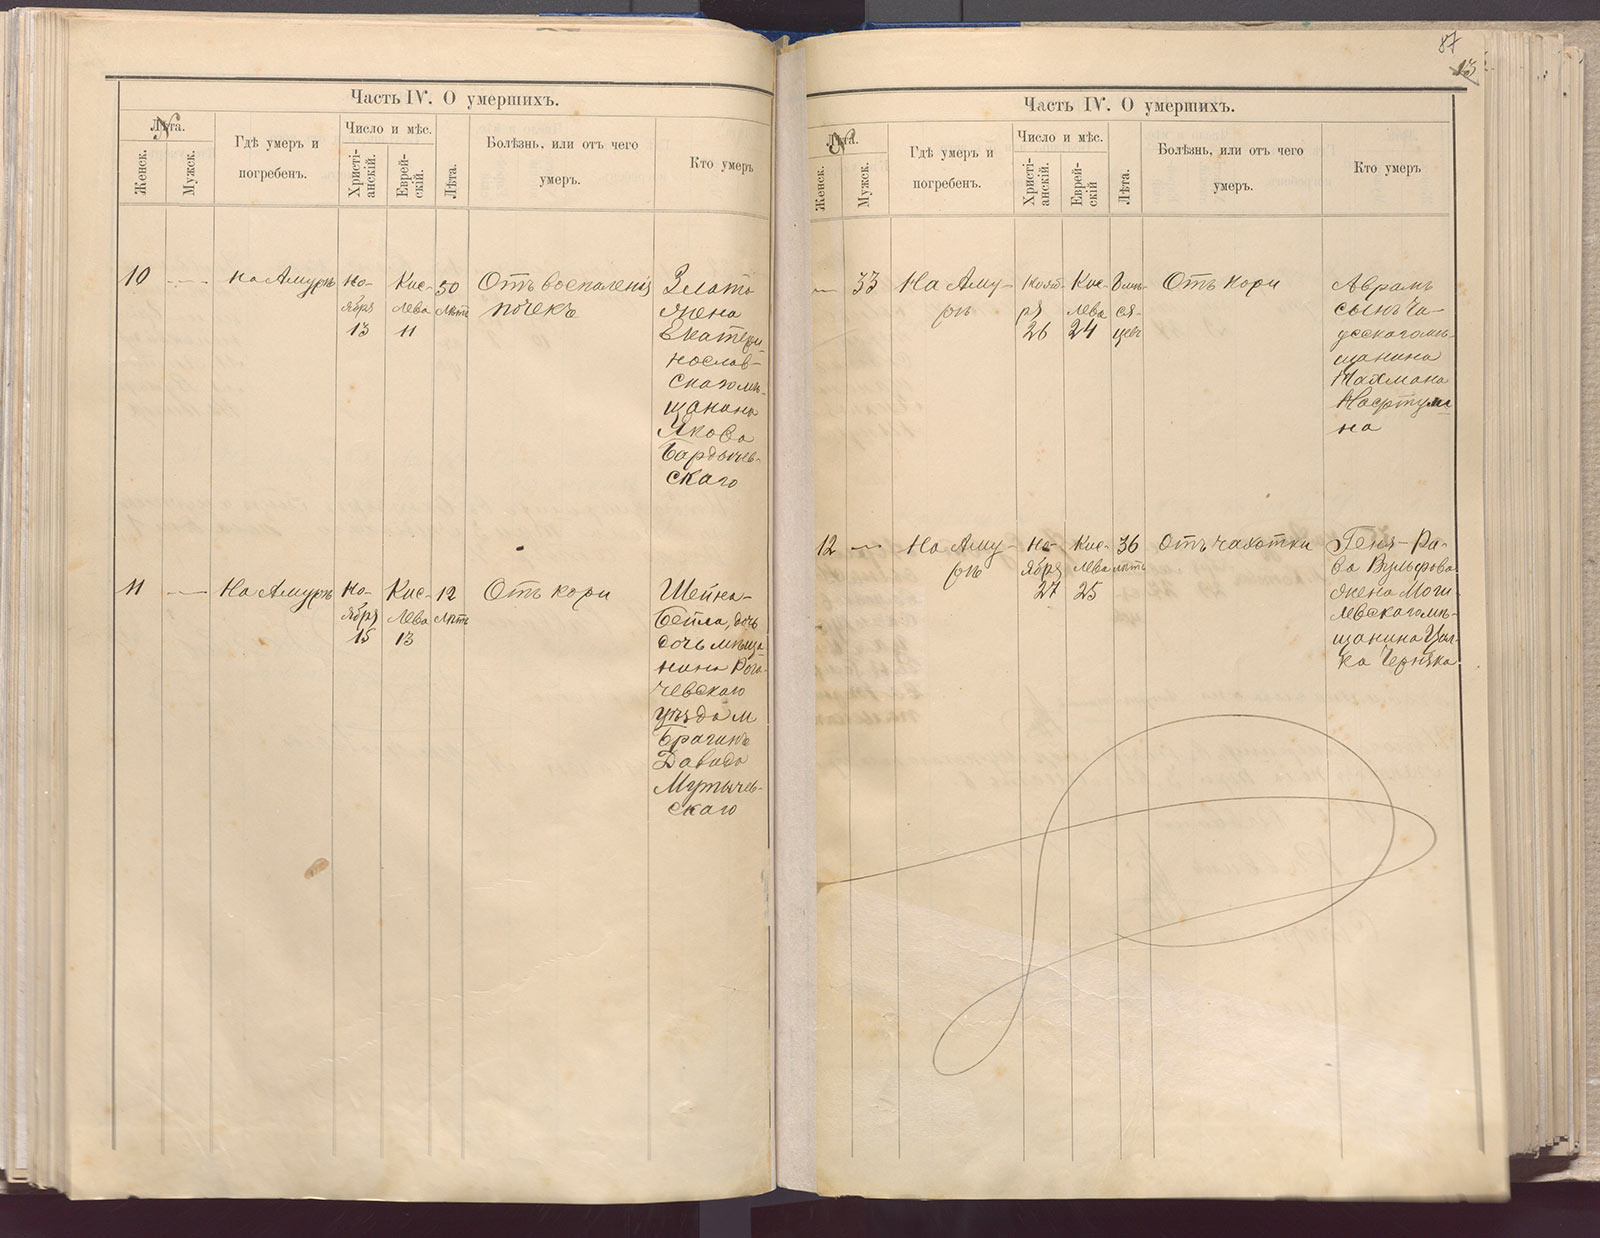 87
13
Часть IV. О умершихъ.
Лѣта.
№
Женск.
Мужск.
Гдѣ умеръ и
погребенъ.
Число и мѣс.
Христі-
анскій.
Еврей-
скій.
Лѣта.
Болѣзнь, или отъ чего
умеръ.
Кто умеръ
10
На Амурѣ
Но-
ября
13
Кис-
лева
11
50
лѣтъ
Отъ воспаленія
почекъ
Злата
жена
Екатери
нослав-
скаго мѣ-
щанина
Якова
Бардычев-
скаго
11
На Амурѣ
Но-
ября
15
Кис-
лева
13
12
лѣтъ
Отъ кори
Шейна-
Бейла, дочь
дочь мѣща-
нина Рога-
чевскаго
уѣзда м
Брагинъ
Давида
скаго
Часть IV. О умершихъ.
Лѣта.
№
Женск.
Мужск.
Гдѣ умеръ и
погребенъ.
Число и мѣс.
Христі-
анскій.
Еврей-
скій
Лѣта.
Болѣзнь, или отъ чего
умеръ.
Кто умеръ
33
На Аму-
рѣ
Нояб
ря
26
Кис-
лева
24
мѣ-
ся-
цевъ
Отъ кори
Аврамъ
сынъ Ча-
усскаго мѣ-
щанина
Нахмана
на
12
На Аму-
рѣ
Но-
ября
27
Кис-
лева
25
36
лѣтъ
Отъ чахотки
Геня-Ра-
ва Вульфова
жена Моги-
левскаго мѣ-
щанина
ка Черняка